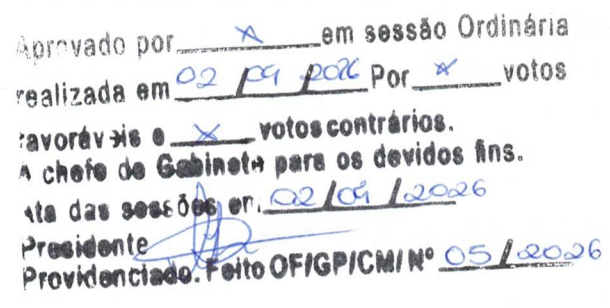 Aprovado por x em sessão Ordinária
realizada em 02 / 09 / 2026 Por x votos
favoráveis e x votos contrários.
A chefe de Gabinete para os devidos fins.
ata das sessões em 02/09/2026
Presidente
Providenciado. Feito OF/GP/CM/ Nº 05/2026